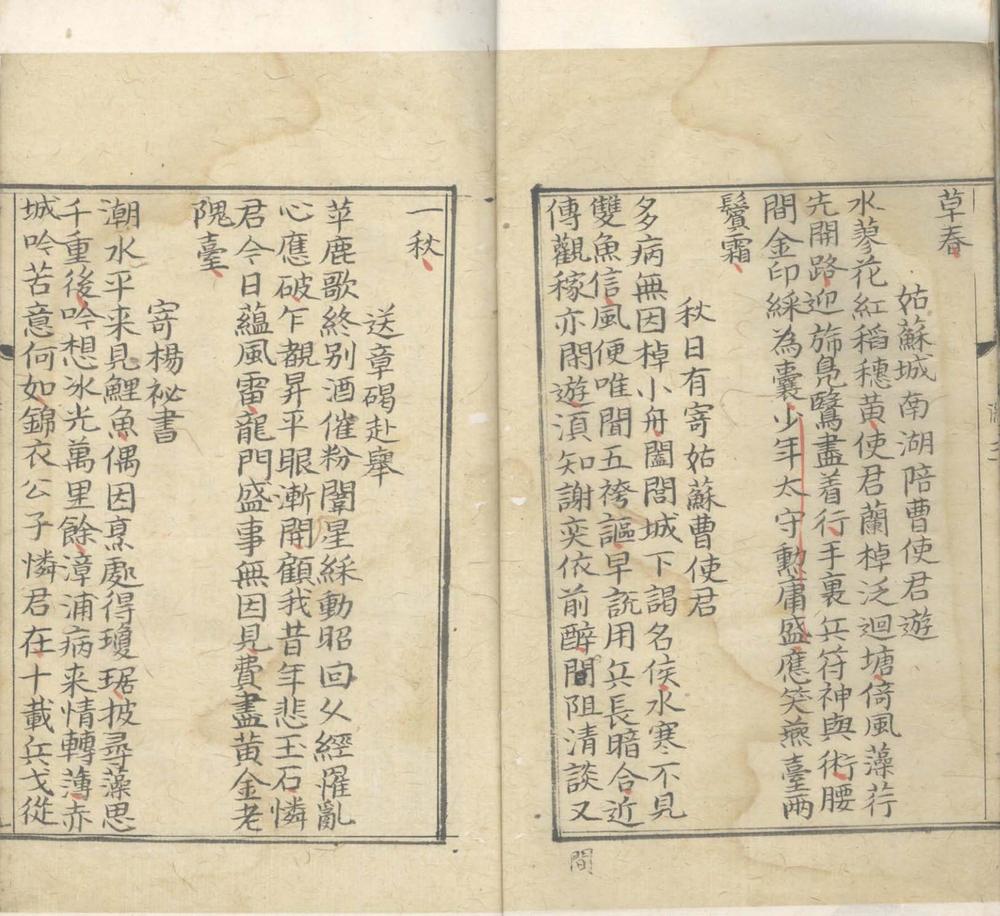 草春
姑蘇城南湖陪曹使君遊
水蓼花紅稻穗黄使君蘭棹泛迴塘倚風藻荇
先開路迎斾鳧鷖盡着行手裏兵符神與術腰
間金印綵為囊少年太守勲庸盛應笑燕臺兩
鬢霜
秋日有寄姑蘇曹使君
多病無因棹小舟闔閭城下謁名侯水寒不見
雙魚信風便唯聞五袴謳早說用兵長暗合近
傳觀稼亦閑遊湏知謝奕依前醉閒阻清談又
間
一秋
送章碣赴舉
苹鹿歌終别酒催粉闈星綵動昭回久經罹亂
心應破乍覩昇平眼漸開顧我昔年悲玉石憐
君今日藴風雷龍門盛事無因見費盡黄金老
隗臺
寄楊祕書
潮水平来見鯉魚偶因烹處得瓊琚披尋藻思
千重後吟想冰光萬里餘漳浦病来情轉薄赤
城吟苦意何如錦衣公子憐君在十載兵戈從